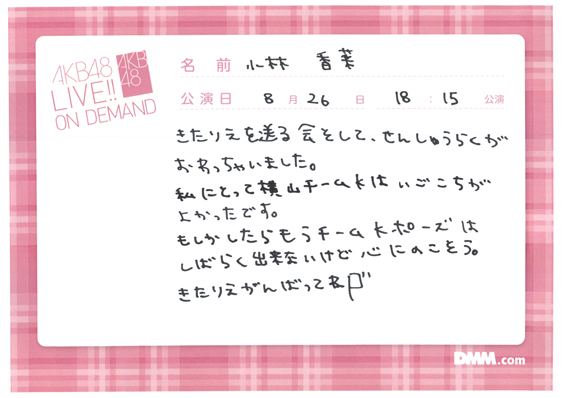 AKB48
LIVE!!
ON DEMAND
AKB
48
名前 小林 香菜
公演日 8月26日 18:15公演
きたりえを送る会そして、せんしゅうらくが
おわっちゃいました。
私にとって横山チームKはいごこちが
よかったです。
もしかしたらもうチームKポーズは
しばらく出来ないけど心にのこそう。
きたりえがんばってね
DMM.com